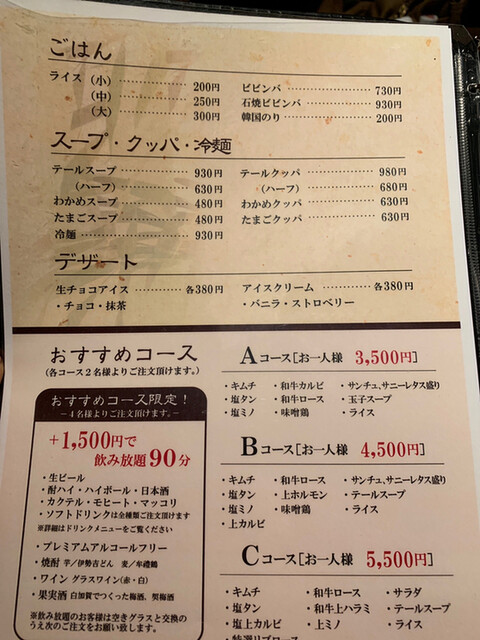 ごはん
ライス（小）……………200円
（中）……………250円
（大）……………300円
ビビンバ……………730円
石焼ビビンバ……………930円
韓国のり……………200円
スープ・クッパ・冷麺
テールスープ……………930円
（ハーフ）……………630円
わかめスープ……………480円
たまごスープ……………480円
冷麺……………930円
テールクッパ……………980円
（ハーフ）……………680円
わかめクッパ……………630円
たまごクッパ……………630円
デザート
生チョコアイス……………各380円
・チョコ・抹茶
アイスクリーム……………各380円
・バニラ・ストロベリー
おすすめコース
（各コース２名様よりご注文頂けます。）
おすすめコース限定！
－４名様よりご注文頂けます。－
+1,500円で
飲み放題90分
・生ビール
・酎ハイ・ハイボール・日本酒
・カクテル・モヒート・マッコリ
・ソフトドリンクは全種類ご注文頂けます
※詳細はドリンクメニューをご覧ください
・プレミアムアルコールフリー
・焼酎 芋／伊勢吉どん 麦／牟禮鶴
・ワイン グラスワイン（赤・白）
・果実酒 白加賀でつくった梅酒、契梅酒
※飲み放題のお客様は空きグラスと交換の
うえ次のご注文をお願い致します。
Aコース［お一人様 3,500円］
・キムチ ・和牛カルビ ・サンチュ、サニーレタス盛り
・塩タン ・和牛ロース ・玉子スープ
・塩ミノ ・味噌鶏 ・ライス
Bコース［お一人様 4,500円］
・キムチ ・和牛ロース ・サンチュ、サニーレタス盛り
・塩タン ・上ホルモン ・テールスープ
・塩ミノ ・味噌鶏 ・ライス
・上カルビ
Cコース［お一人様 5,500円］
・キムチ ・和牛ロース ・サラダ
・塩タン ・和牛上ハラミ ・テールスープ
・塩上カルビ ・上ミノ ・ライス
・特選リブロース